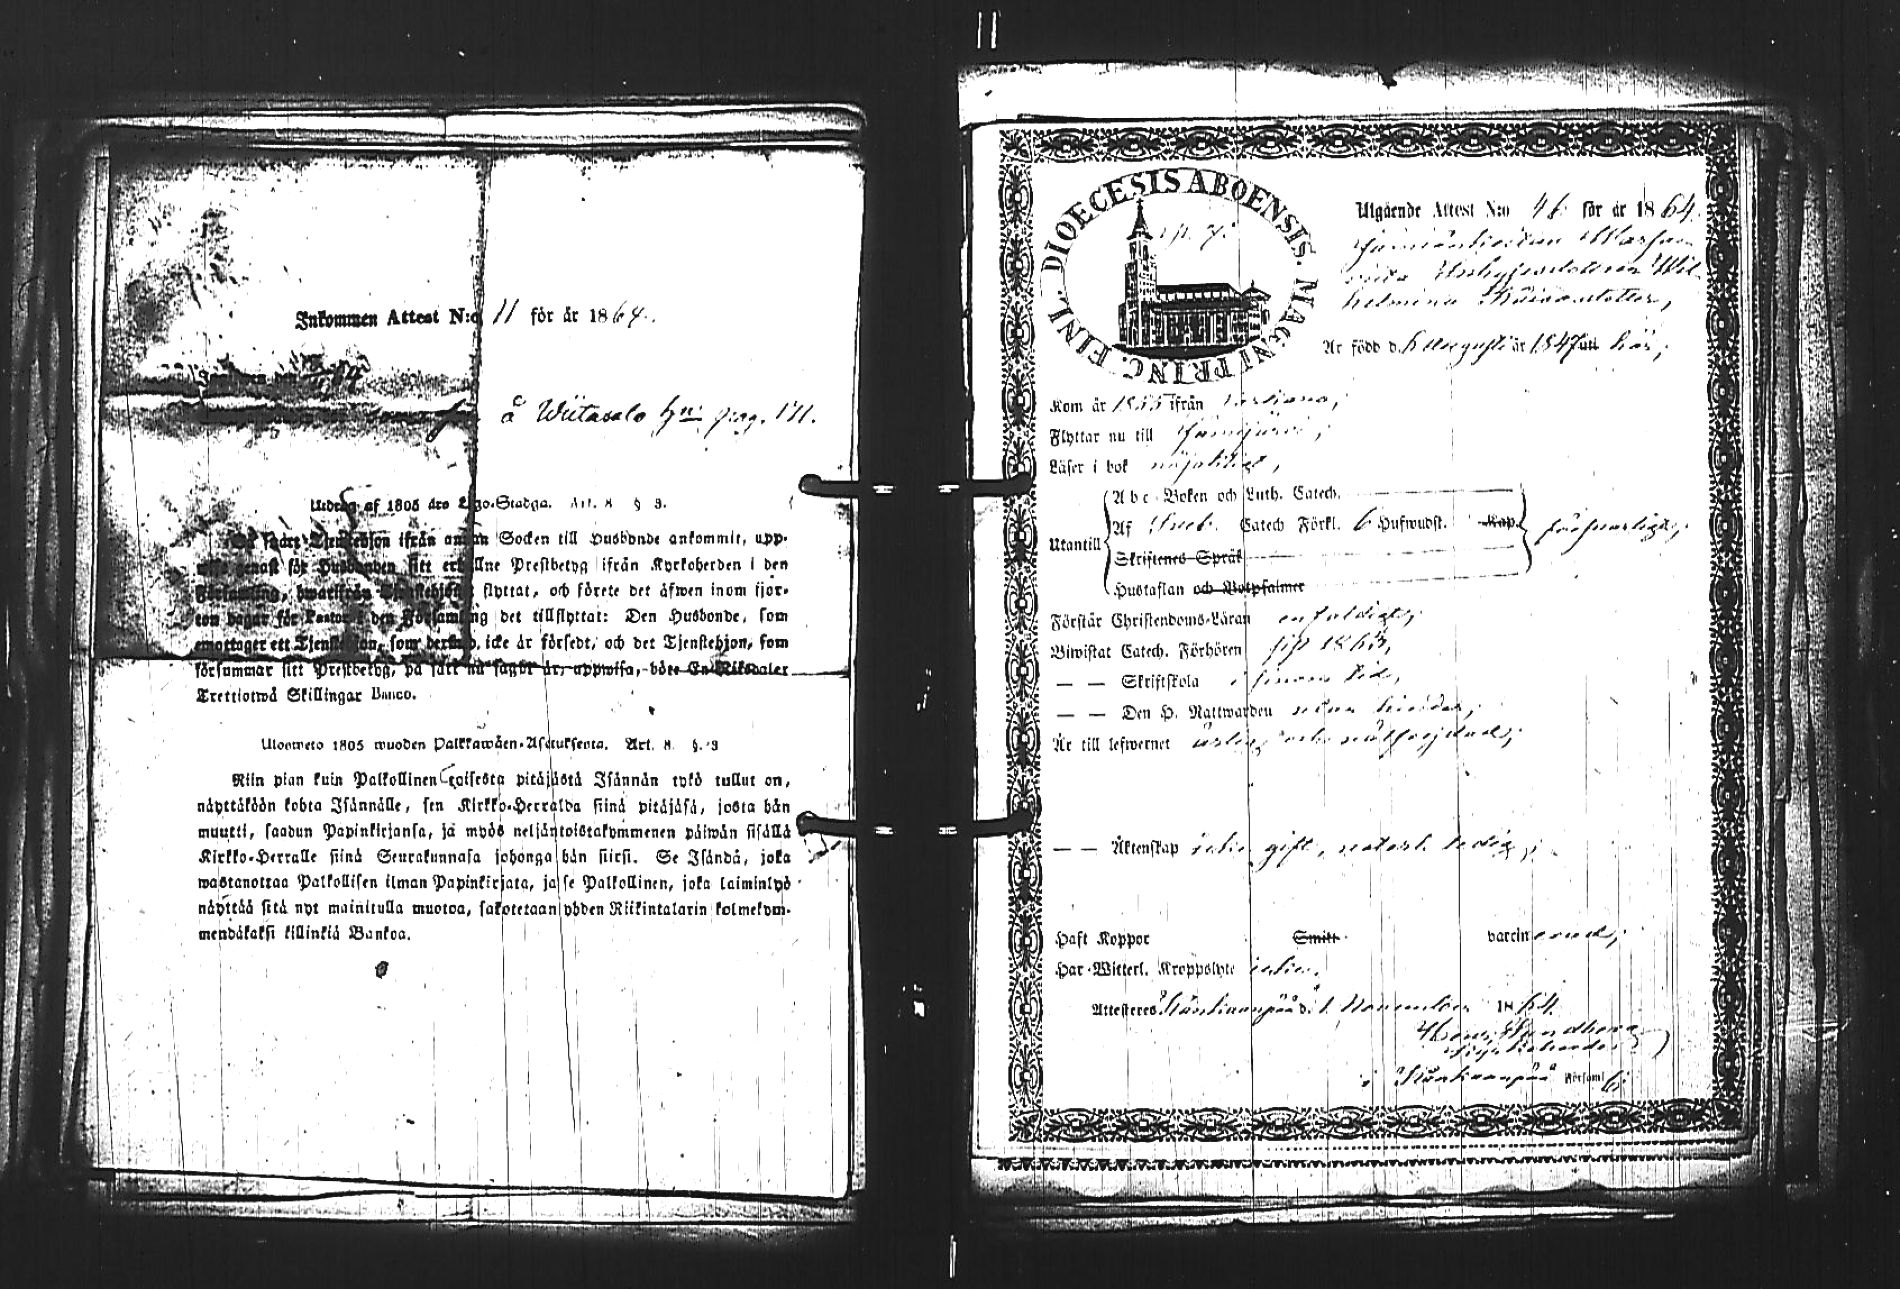 Inkommen Attest N:o 11 för år 1864.
å Wiitasalo hn pag. 171.
Utdrag af 1805 års Lego-Stadga. Art. 8 § 9.
Så snart Tjenstehjon ifrån annan Socken till Husbonde ankommit, upp-
wise genast för Husbonden sitt erhållne Prestbetyg ifrån Kyrkoherden i den
Församling, hwarifrån Tjenstehjonet flyttat, och förete det äfwen inom fjor-
ton dagar för Pastor i den Församling det tillflyttat: Den Husbonde, som
emottager ett Tjenstehjon, som dermed icke är försedt, och det Tjenstehjon, som
försummar sitt Prestbetyg, på sätt nu sagdt är, uppwisa, böte En Riksdaler
Trettiotwå Skillingar Banco.
Ulosweto 1805 wuoden Palkkawäen-Asetuksesta. Art. 8. §. 9
Niin pian kuin Palkollinen toisesta pitäjästä Isännän tykö tullut on,
näyttäköön kohta Isännälle, sen Kirkko-Herralda siinä pitäjäsä, josta hän
muutti, saadun Papinkirjansa, ja myös neljäntoistakymmenen päiwän sisällä
Kirkko-Herralle siinä Seurakunnasa johonga hän siirsi. Se Isändä, joka
wastanottaa Palkollisen ilman Papinkirjata, ja se Palkollinen, joka laiminlyö
näyttää sitä nyt mainitulla muotoa, sakotetaan yhden Riikintalarin kolmekym-
mendäkaksi killinkiä Bankoa.
DIOECESIS ABOENSIS. MAGNI PRINC. FINL.
Utgående Attest N:o 46 för år 1864.
helmina
Är född d. 6 Augusti år 1847 uti här;
Kom år 1855 ifrån
Flyttar nu till Jämijärvi;
Läser i bok nöjaktigt,
Utantill
Abc-Boken och Luth. Catech.
Af Sveb. Catech Förkl. 6 Hufwudst. Kap.
försvarligt;
Skriftenes Språk
Hustaflan och Botpsalmer
Förstår Christendoms-Läran enfaldigt;
Biwistat Catech. Förhören sist 1863,
— — Skriftskola i sinom tid,
— — Den H. Nattwarden utan hinder;
Är till lefwernet ärlig och välfrejdad;
— — Äktenskap icke gift, ledig;
Haft Koppor Smitt vaccinerad;
Har Witterl. Kroppslyte icke.
Attesteres Kankaanpää d. 1 November 1864.
i Kankaanpää Församl